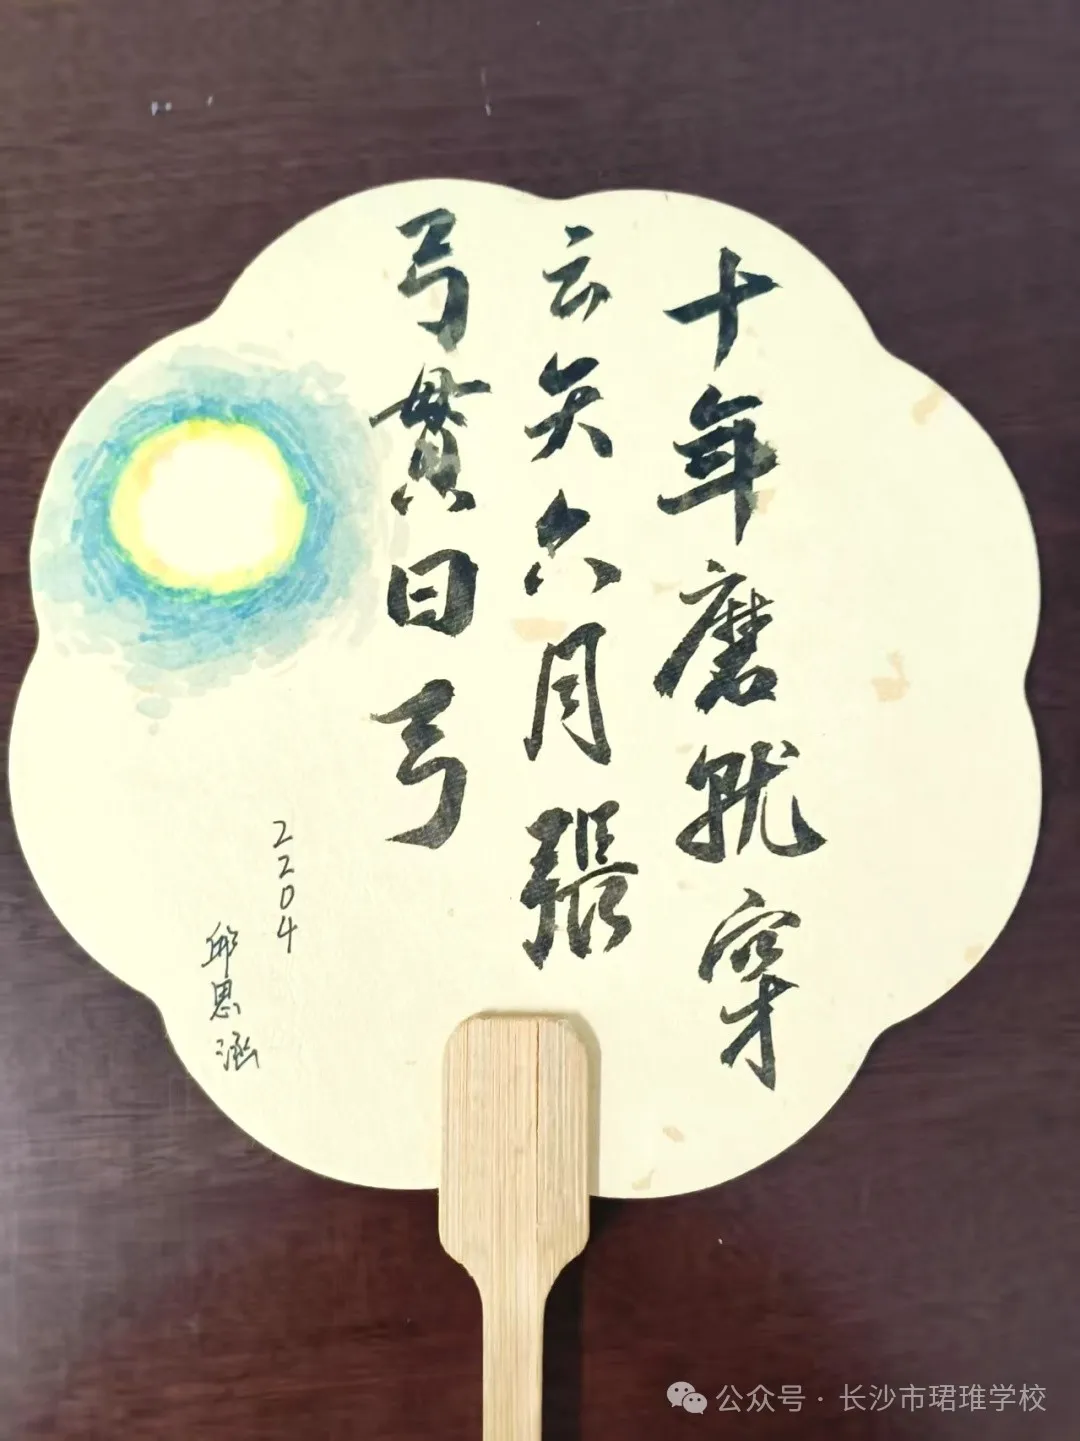 十年磨就穿
云矢六月張
弓貫日弓
2204
邱思涵
公众号·长沙市珺琟学校